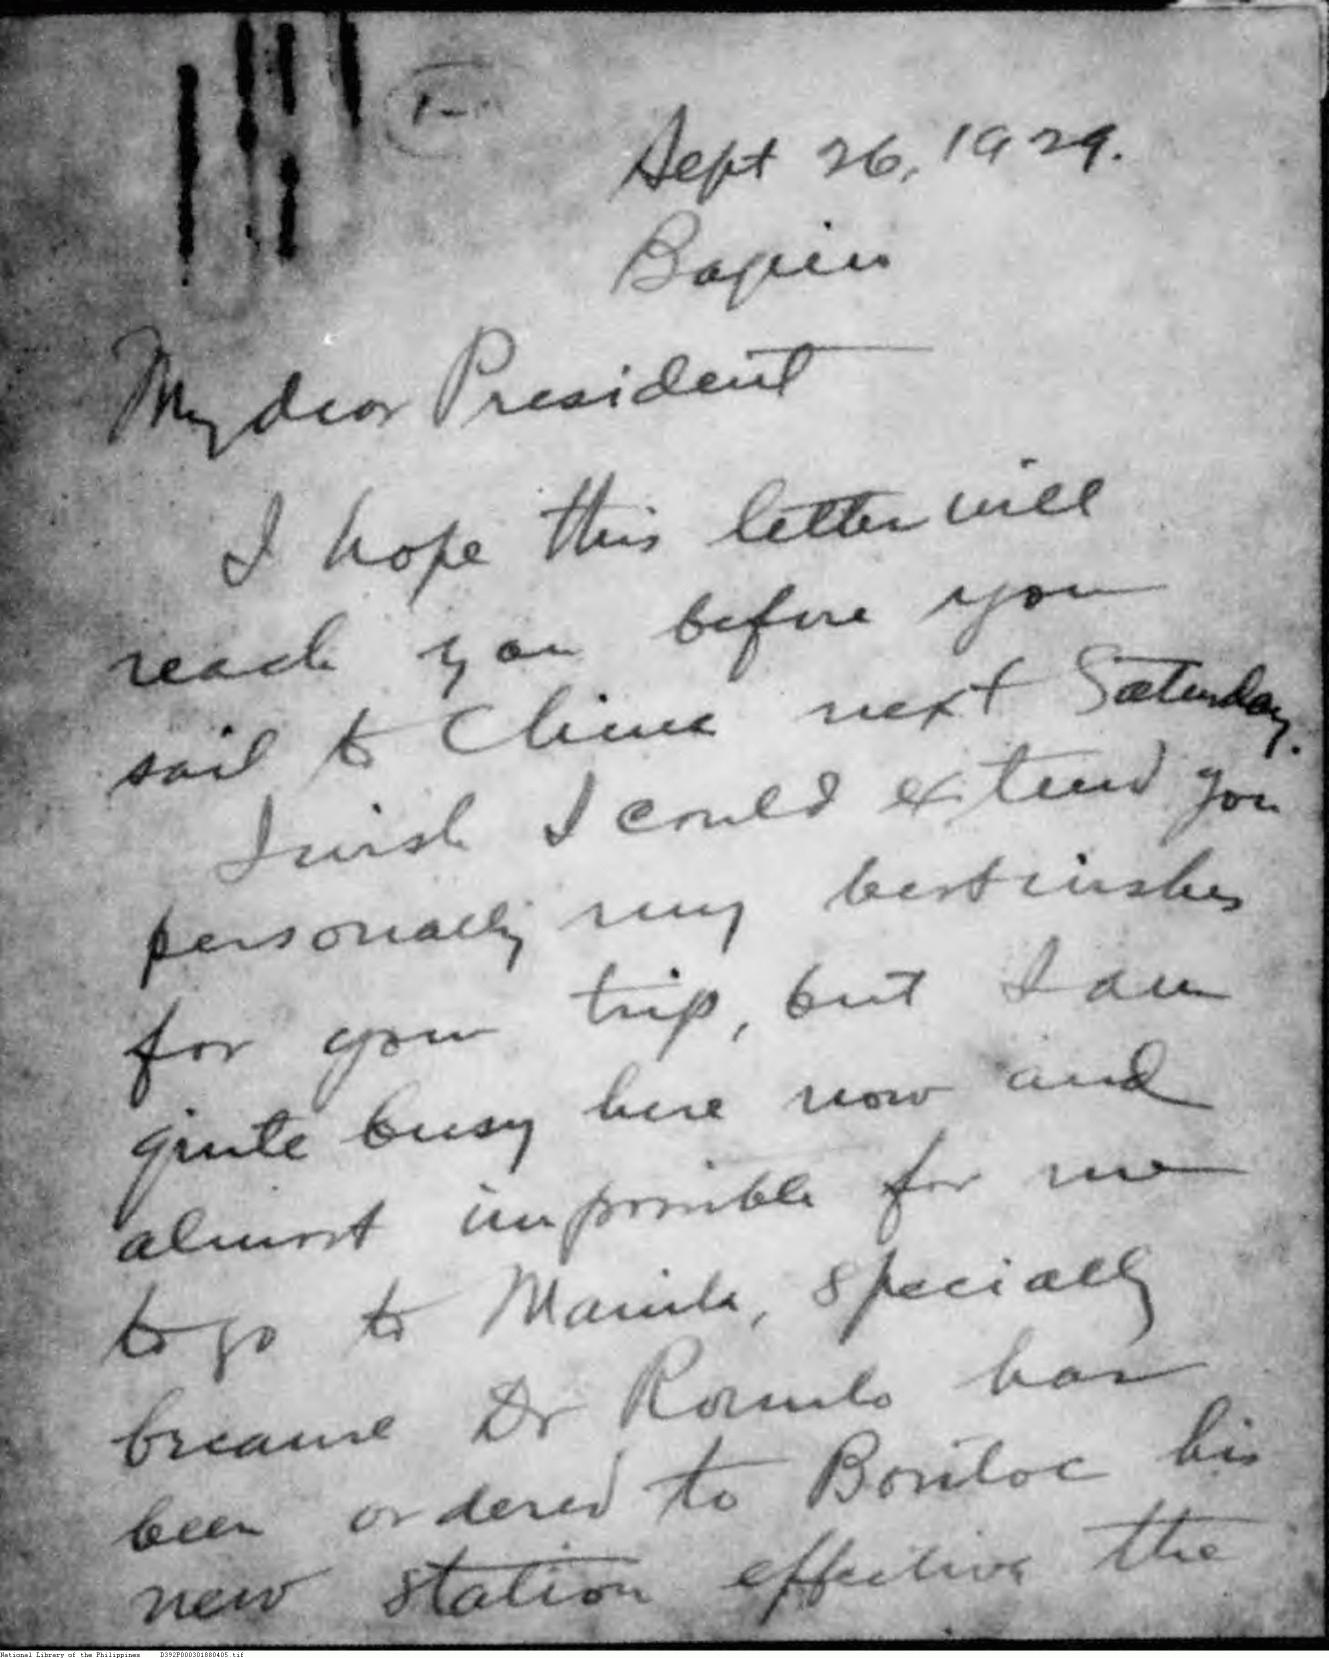 1-
Sept 26, 1929.
Baguio
My dear President
I hope this letter will
reach you before you
sail to China next Saturday.
I wish I could extend you
personally my best wishes
for your trip, but I am
quite busy here now and
almost impossible for me
to go to Manila, specially
because Dr Romulo has
been ordered to Bontoc his
new station effective the
National Library of the Philippines D392P000301880405.tif